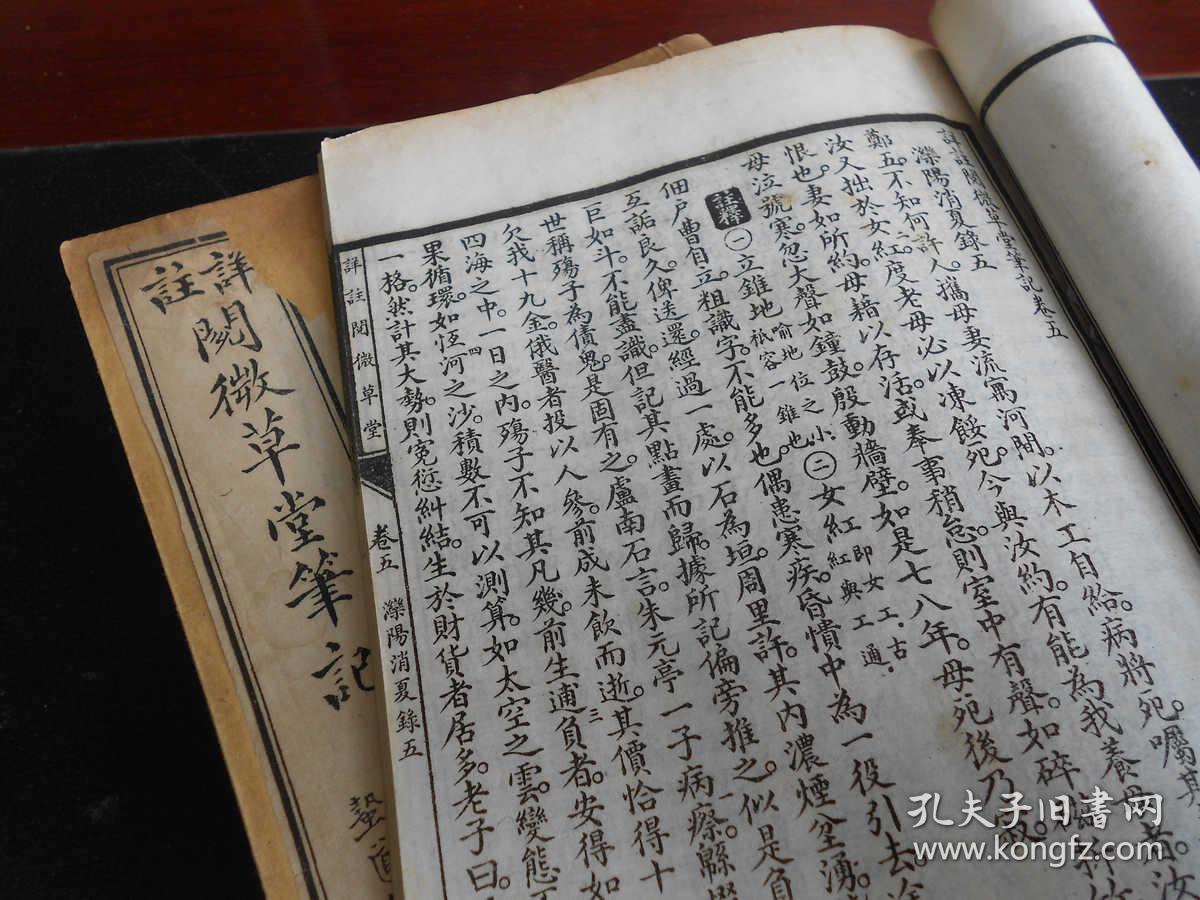 詳註閱微草堂筆記卷五
灤陽消夏錄五
鄭五。不知何許人。攜母妻流寓河間。以木工自給。病將死。囑其
汝又拙於女紅。度老母必以凍餒死。今與汝約。有能為我養母
恨也。妻如所約。母藉以存活。或奉事稍怠。則室中有聲。如碎
母泣號寒。忽大聲如鐘鼓。殷動牆壁。如是七八年。母死後乃
註釋 ㊀立錐地 喻地位之小。祇容一錐也。 ㊁女紅 即女工。古紅與工通。
佃戶曹自立。粗識字。不能多也。偶患寒疾。昏憒中為一役引去。途
互詬良久。俾送還。經過一處。以石為垣。周里許。其內濃煙坌湧。
巨如斗。不能盡識。但記其點畫而歸。據所記偏旁推之。似是負
世稱殤子為債鬼。是固有之。盧南石言。朱元亭一子病瘵。緜惙
欠我十九金。俄醫者投以人參。煎成未飲而逝。其價恰得十
四海之中。一日之內。殤子不知其凡幾。前生逋負者。安得如
果循環。如恆河之沙。積數不可以測算。如太空之雲。變態不
一格。然計其大勢。則冤愆糾結。生於財貨者居多。老子曰。
詳註閱微草堂
卷五
灤陽消夏錄五
詳註
閱微草堂筆記
孔夫子旧书网
www.kongfz.com